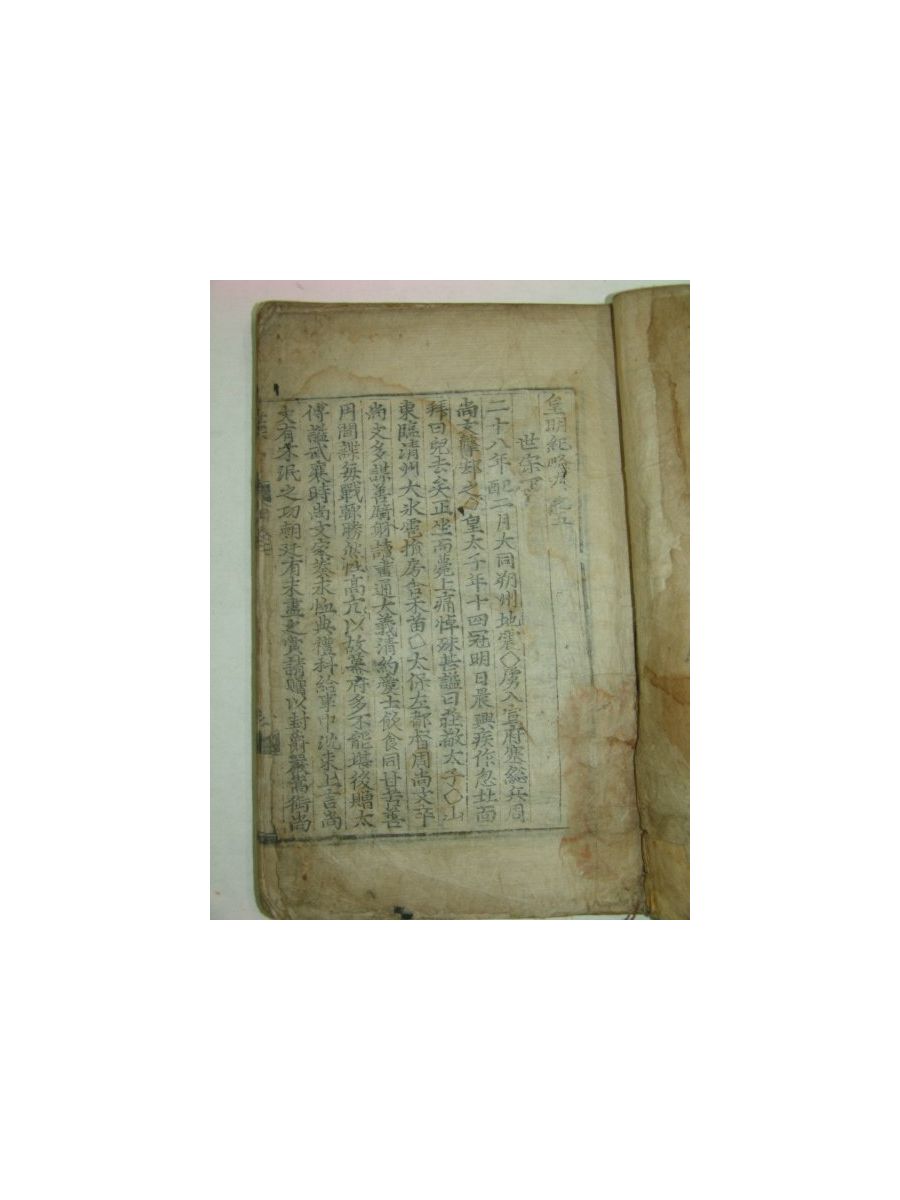 皇明紀略卷之五
世宗下
二十八年配二月大同朔州地震○虜入宣府塞総兵周
尚文擊却之○皇太子年十四冠明日晨興疾作忽北面
拜曰兒去矣正坐而薨上痛悼殊甚謚曰莊敬太子○山
東臨清州大氷雹損房舍禾苗○太保左都督周尚文卒
尚文多謀善騎射讀書通大義清約愛士飲食同甘苦善
用間諜每戰輒勝然性高亢以故幕府多不能堪後贈太
傅謚武襄時尚文家奏求恤典禮科給事中沈束上言尚
文有不泯之功朝廷有未盡之賞請贈以封爵嚴嵩銜尚